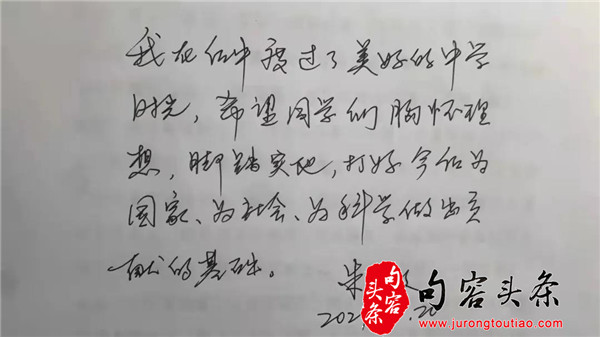 我在中度过了美好的中学
时光，希望同学们胸怀理
想，脚踏实地，打好今后为
国家、为社会、为科学做出贡
献的基础。
朱
202 .20
句容
头条
句容头条
www.jurongtoutiao.com